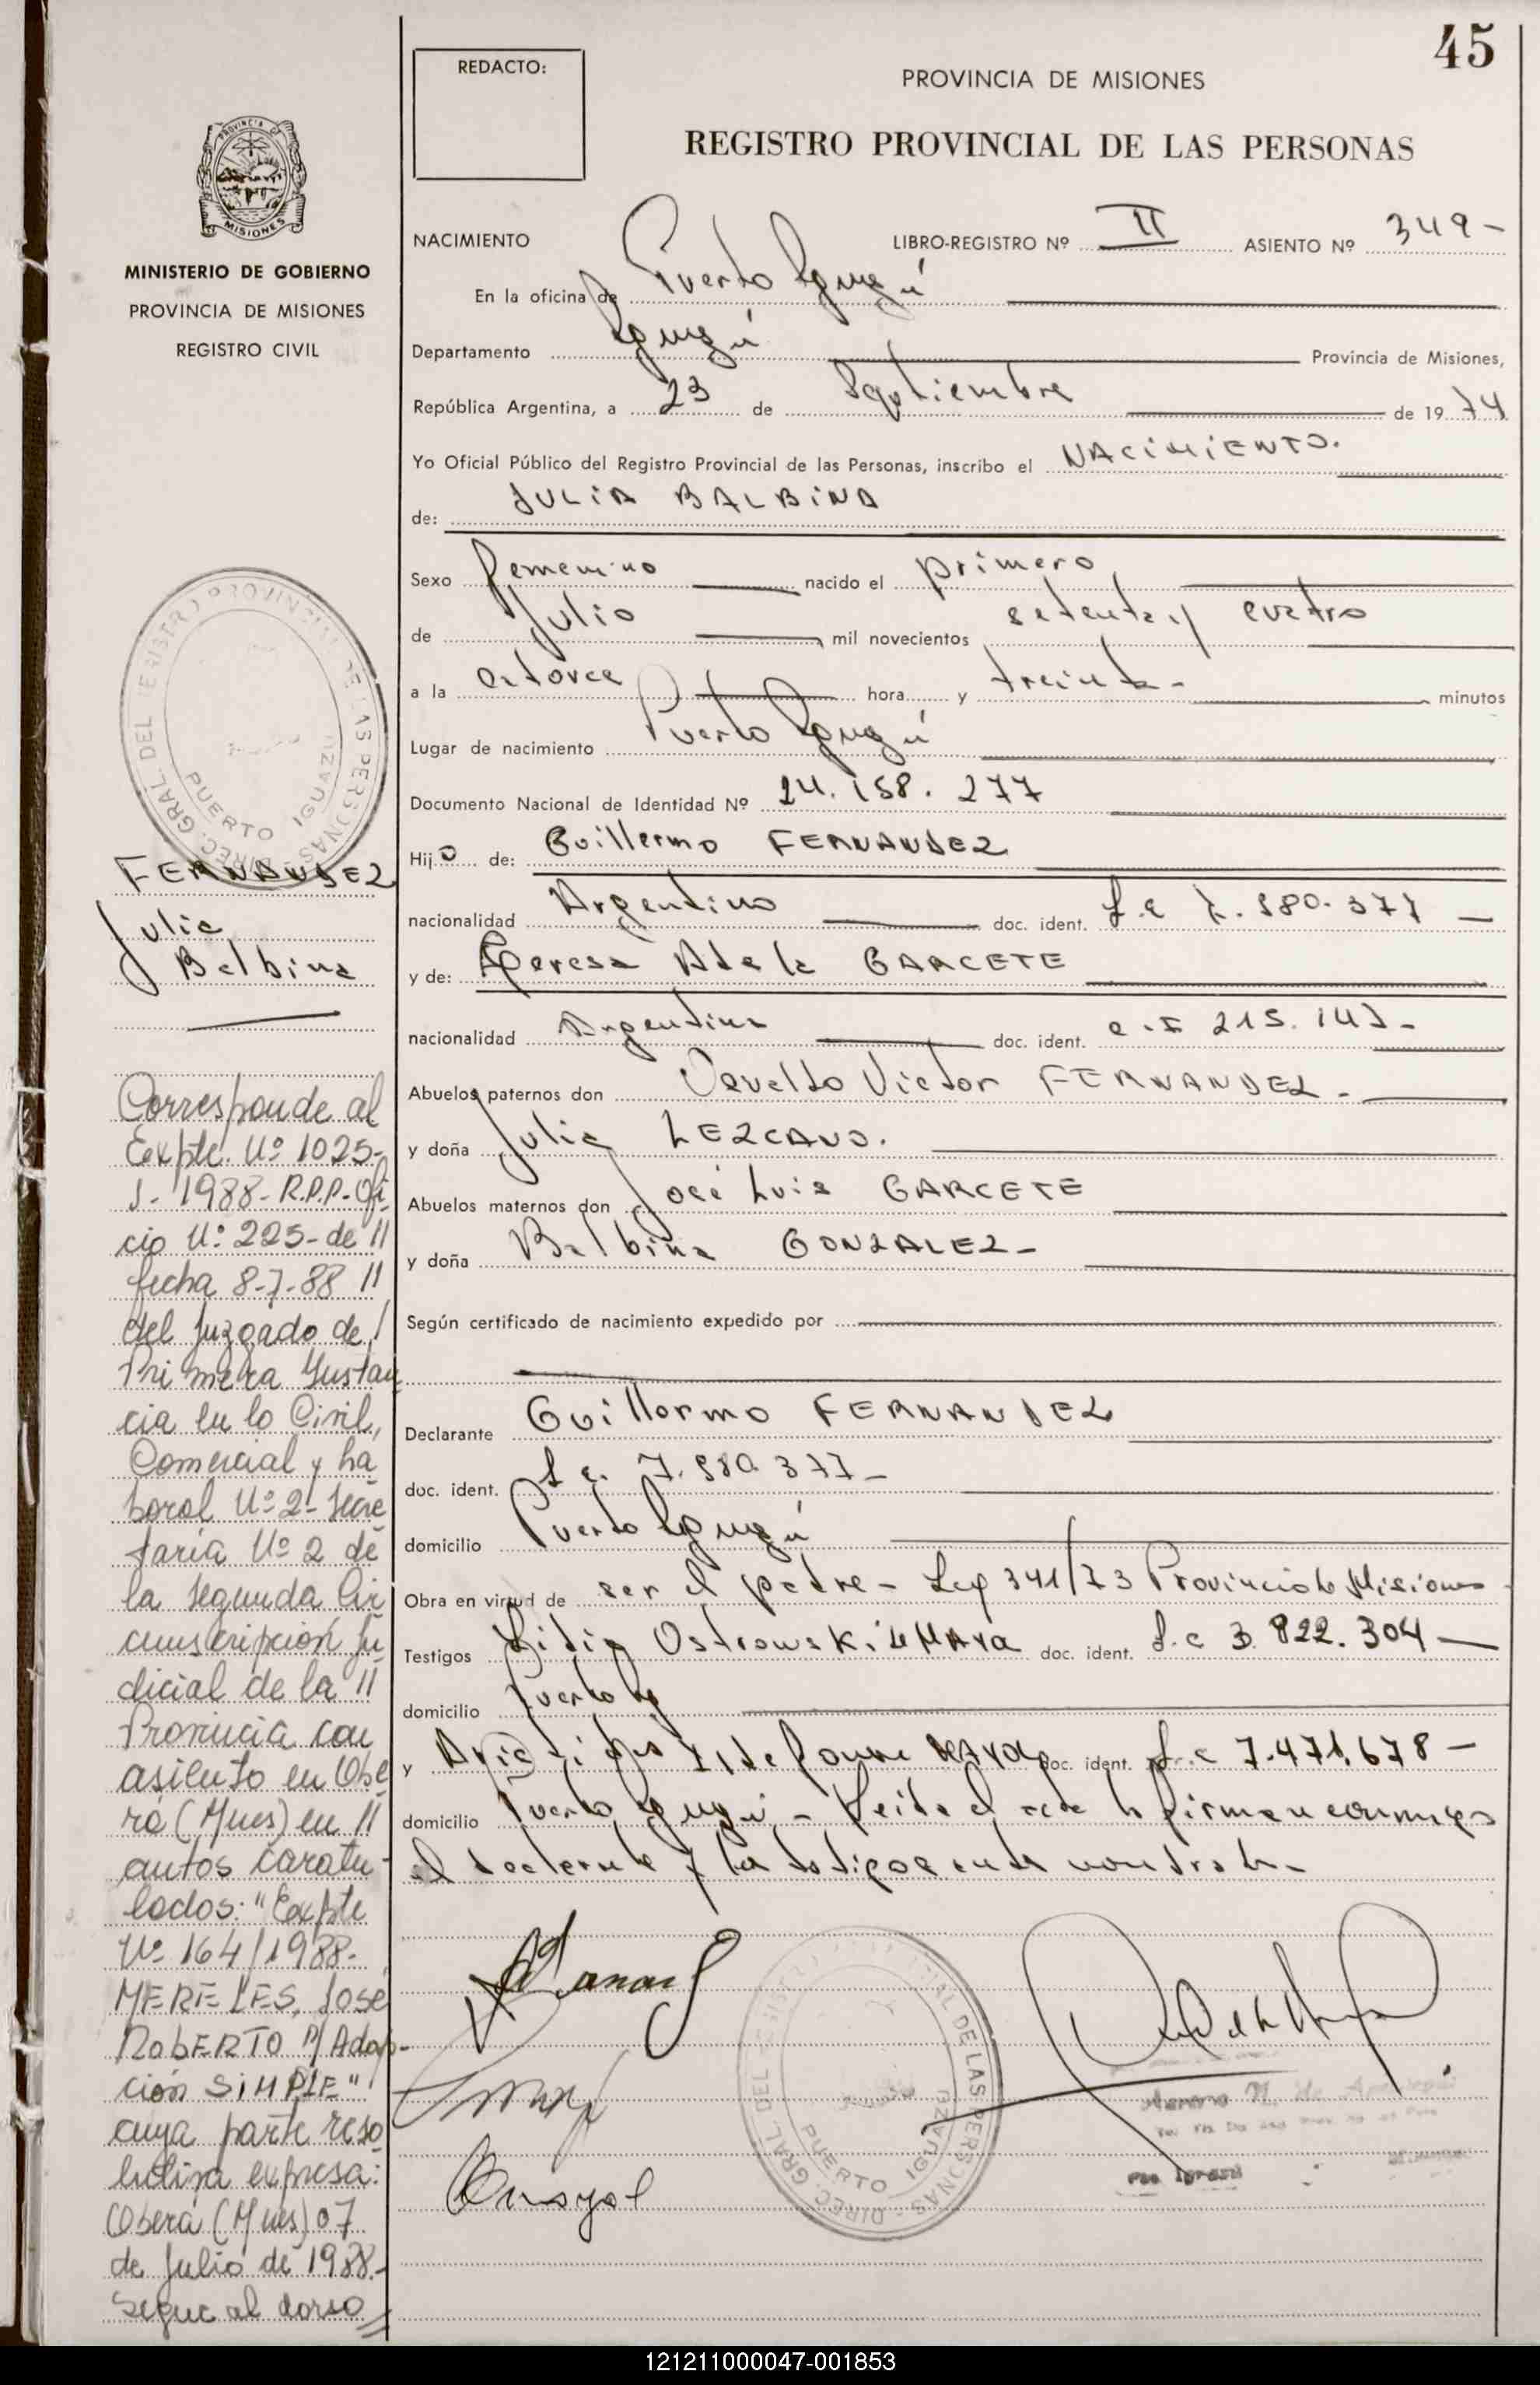 45
REDACTO:
PROVINCIA DE MISIONES
REGISTRO PROVINCIAL DE LAS PERSONAS
PROVINCIA DE
MISIONES
MINISTERIO DE GOBIERNO
PROVINCIA DE MISIONES
REGISTRO CIVIL
NACIMIENTO
LIBRO-REGISTRO Nº II ASIENTO Nº 349-
En la oficina de Puerto Iguazú
Departamento Iguazú Provincia de Misiones,
República Argentina, a 23 de Septiembre de 19 74
Yo Oficial Público del Registro Provincial de las Personas, inscribo el NACIMIENTO.
de: JULIA BALBINA
Sexo femenino nacido el primero
de Julio mil novecientos setenta y cuatro
a la catorce hora y treinta- minutos
Lugar de nacimiento Puerto Iguazú
Documento Nacional de Identidad Nº 24.158.277
Hijo de: Guillermo FERNANDEZ
nacionalidad Argentino doc. ident. L.e 7.580.377
y de: Teresa Adela GARCETE
nacionalidad Argentina doc. ident. c.I 215.143-
Abuelos paternos don Osvaldo Victor FERNANDEZ-
y doña Julia LEZCANO.
Abuelos maternos don José Luis GARCETE
y doña Balbina GONZALEZ-
Según certificado de nacimiento expedido por
Declarante Guillermo FERNANDEZ
doc. ident. L e. 7.580.377-
domicilio Puerto Iguazú
Obra en virtud de ser el padre- Ley 341/73 Provincia de Misiones
Testigos Lidia Ostrowski de MAYA doc. ident. L.c 3.822.304
domicilio Puerto Ig
y doc. ident. L.e 7.471.678-
domicilio Puerto Iguazú - Leida el acta la firman conmigo
el declarante y los testigos
DIREC. GRAL. DEL REGISTRO PROVINCIAL DE LAS PERSONAS
PUERTO IGUAZU
FERNANDEZ
Julia
Balbina
Corresponde al
Expte. Nº 1025-
J-1988-R.P.P.-Ofi
cio Nº 225-de//
fecha 8-7-88//
del Juzgado de/
Primera Instan
cia en lo Civil,
Comercial y La
boral Nº 2- Secre
taría Nº 2 de
la Segunda Cir
cunscripción Ju
dicial de la//
Provincia con
asiento en Obe
rá (Mnes) en//
autos caratu-
lados: "Expte
Nº 164/1988-
MERELES, José
RobERTO P/Adop-
ción SiMPLE"
cuya parte reso
lutiva expresa:
Oberá (Mnes) 07
de Julio de 1988.-
Segue al dorso//
DIREC. GRAL. DEL REGISTRO PROVINCIAL DE LAS PERSONAS
PUERTO IGUAZU
Pto Iguazú
121211000047-001853